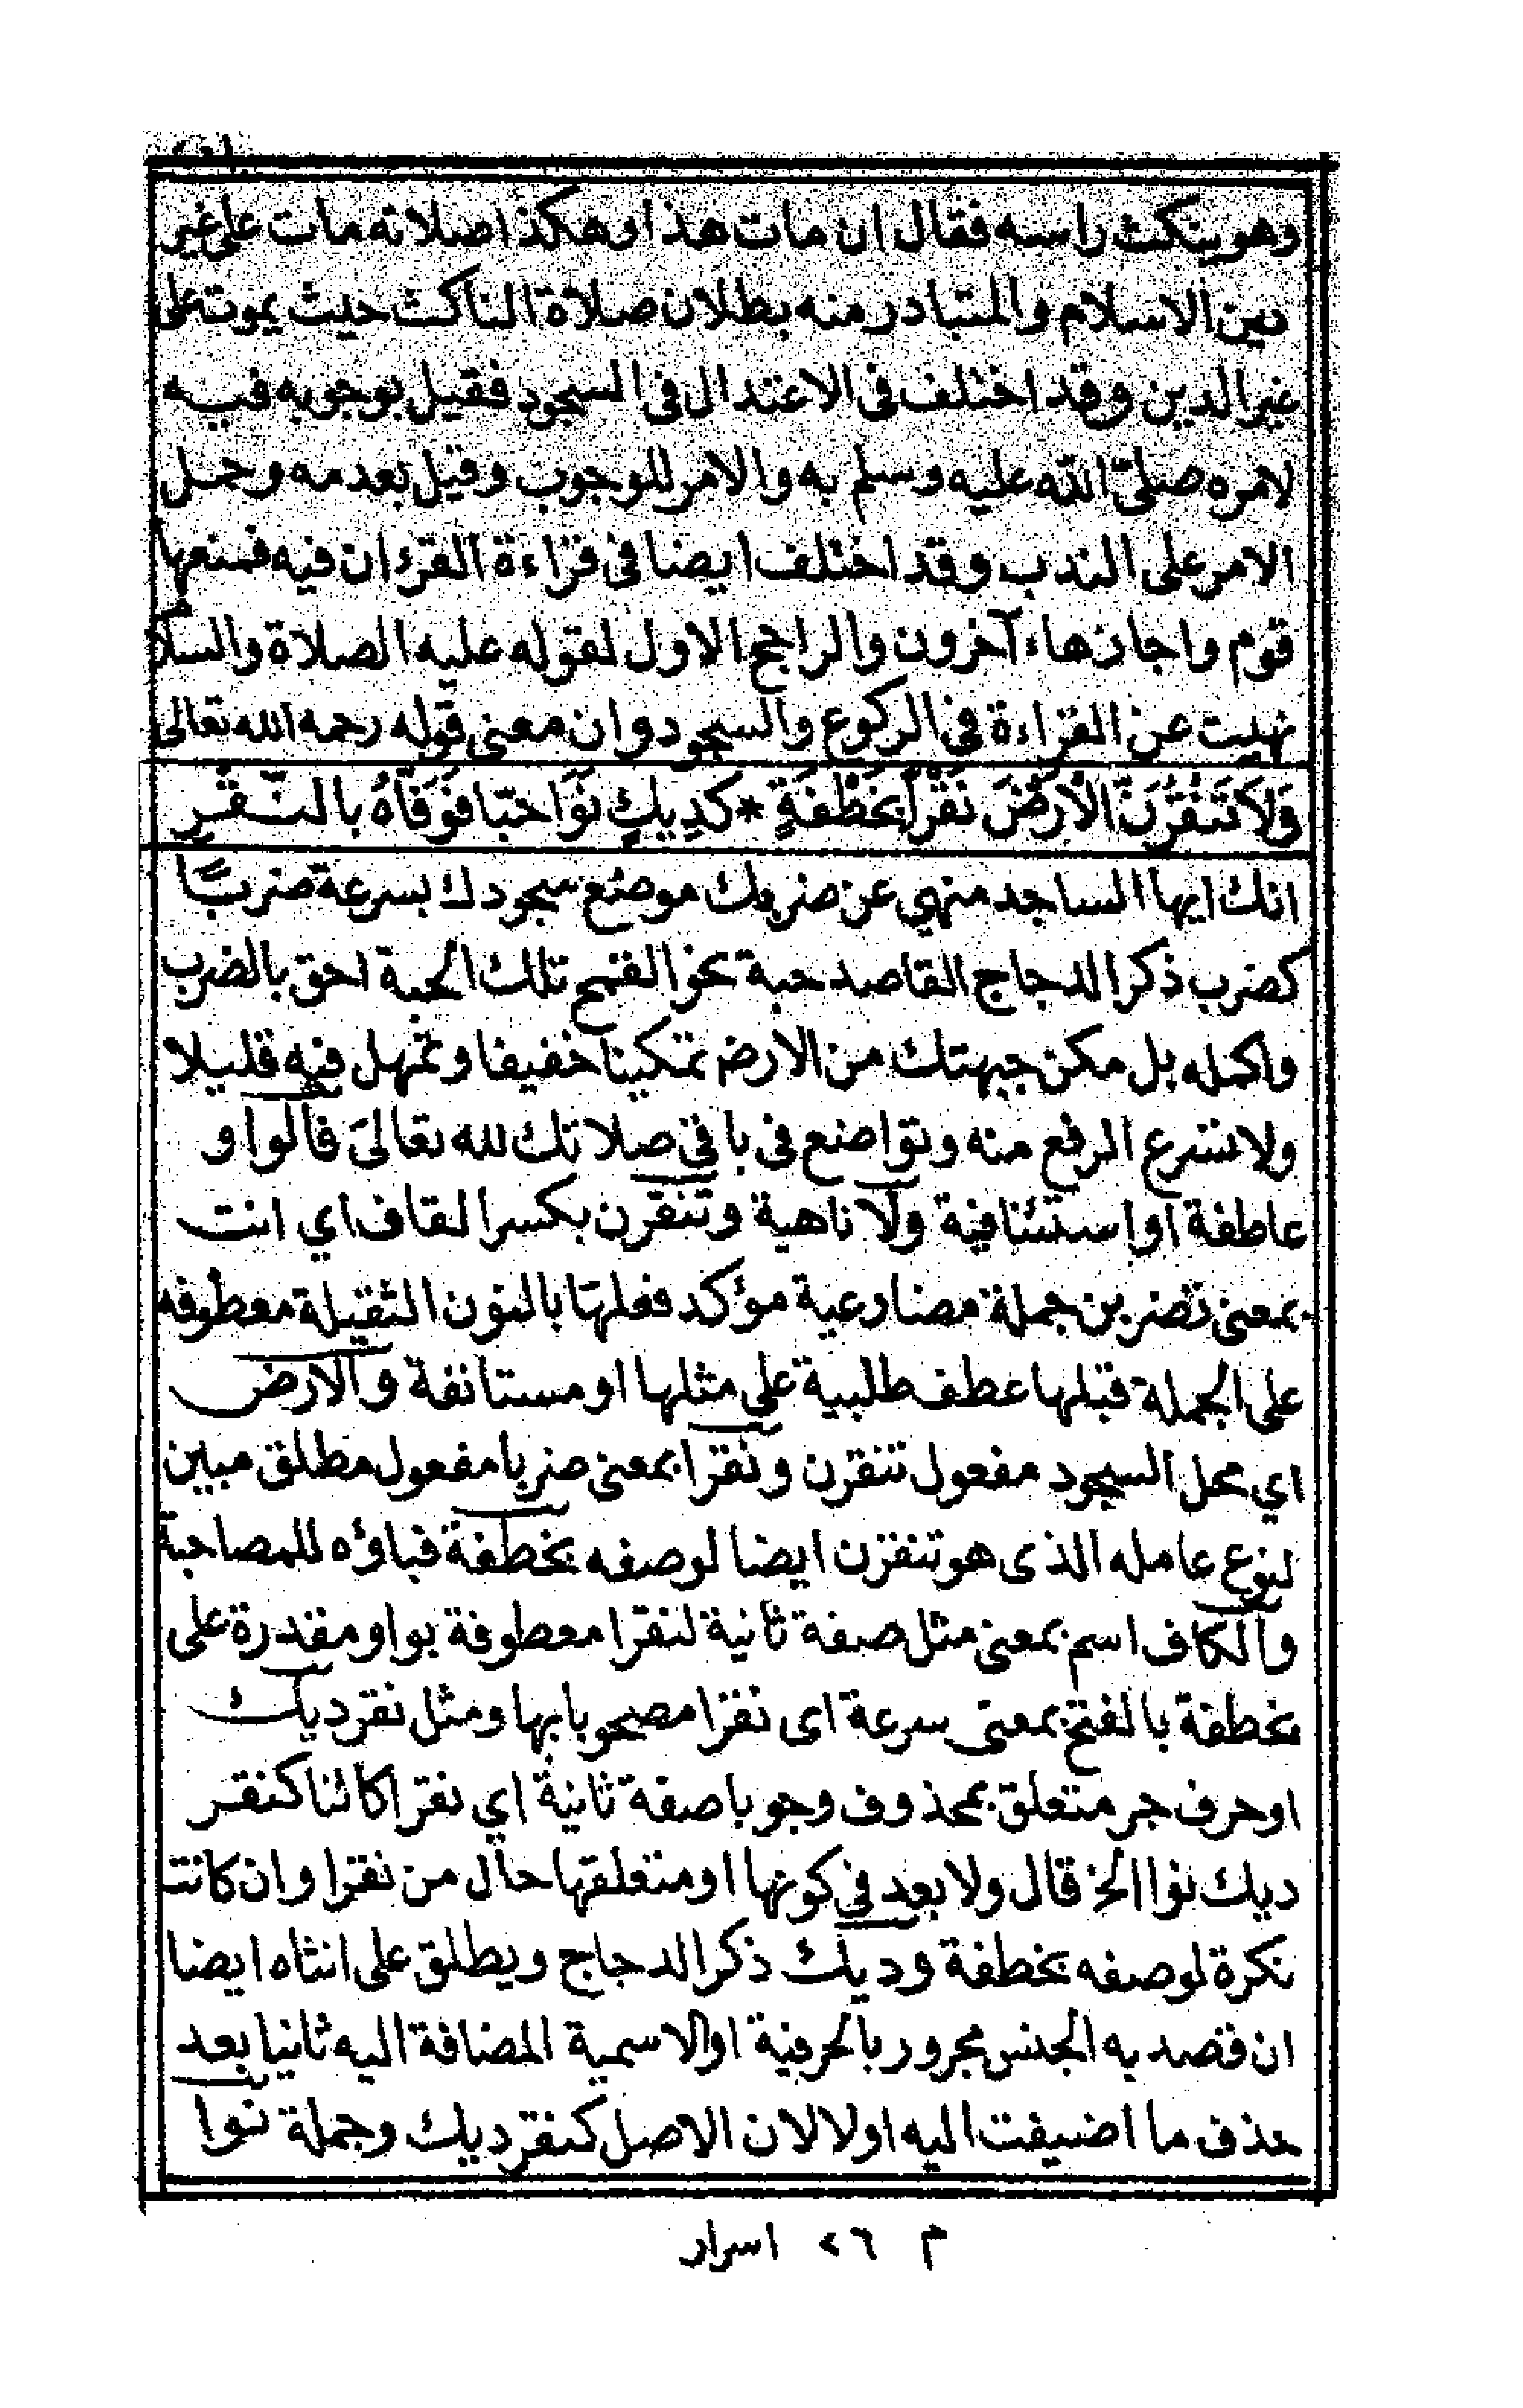 وهو ينكث راسه فقال ان مات هذا وهكذا صلاته مات على غير
دين الاسلام والمتبادر منه بطلان صلاة الناكث حيث يموت على
غير الدين وقد اختلف فى الاعتدال فى السجود فقيل بوجوبه فيه
لامره صلى الله عليه وسلم به والامر للوجوب وقيل بعدمه وحمل
الامر على الندب وقد اختلف ايضا فى قراءة القرءان فيه فمنعها
قوم واجازهاء آخرون والراجح الاول لقوله عليه الصلاة والسلا
نهيت عن القراءة في الركوع والسجود وان معنى قوله رحمه الله تعالى
وَلاَ تَنْقُرَنَّ الْأَرْضَ نَقْرًا بِخَطْفَةٍ * كَدِيكٍ نَوَا حَبًّا فَوَفَّاهُ بالنّقْرِ
انك ايها الساجد منهي عن ضربك موضع سجودك بسرعة ضربًا
كضرب ذكر الدجاج القاصد حبة نحو القمح تلك الحبة احق بالضرب
واكمله بل مكن جبهتك من الارض تمكينا خفيفا وتمهل فيه قليلا
ولا تسرع الرفع منه وتواضع في باقي صلاتك لله تعالىَ قالوا و
عاطفة او استئنافية ولا ناهية وتنقرن بكسر القاف اي انت
بمعنى تضربن جملة مضارعية مؤكد فعلها بالنون الثقيلة معطوفه
على الجملة قبلها عطف طلبية على مثلها او مستانفة والارض
اي محل السجود مفعول تنقرن ونقرا بمعنى ضربا مفعول مطلق مبين
لنوع عامله الذى هو تنقرن ايضا لوصفه بخطفة فباؤه للمصاحبة
والكاف اسم بمعنى مثل صفة ثانية لنقرا معطوفة بواو مقدرة على
بخطفة بالفتح بمعنى سرعة اى نقرا مصحوبا بها ومثل نقر ديك
اوحرف جر متعلق بمحذوف وجوبا صفة ثانية اي نقرا كائنا كنقر
ديك نوا الخ قال ولا بعد في كونها او متعلقها حال من نقرا وان كانت
نكرة لوصفه بخطفة وديك ذكر الدجاج ويطلق على انثاه ايضا
ان قصد به الجنس مجرور بالحرفية او الاسمية المضافة اليه ثانيا بعد
حذف ما اضيفت اليه اولا لان الاصل كنقر ديك وجملة نوا
م ٢٦ اسرار